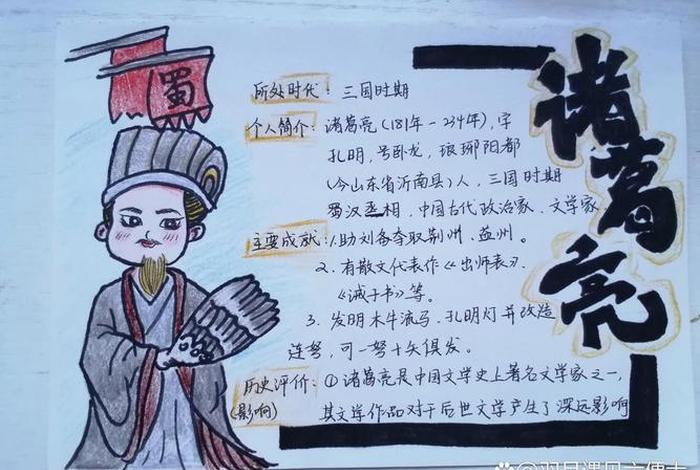 蜀
诸葛亮
所处时代：三国时期
个人简介：诸葛亮（181年－234年），字
孔明，号卧龙，琅琊阳都
（今山东省沂南县）人，三国时期
蜀汉丞相，中国古代政治家、文学家
主要成就：1.助刘备夺取荆州、益州。
2.有散文代表作《出师表》、
《诫子书》等。
3.发明木牛流马、孔明灯并改造
连弩，可一弩十矢俱发。
历史评价：①诸葛亮是中国文学史上著名文学家之一，
（影响） 其文学作品对于后世文学产生了深远影响